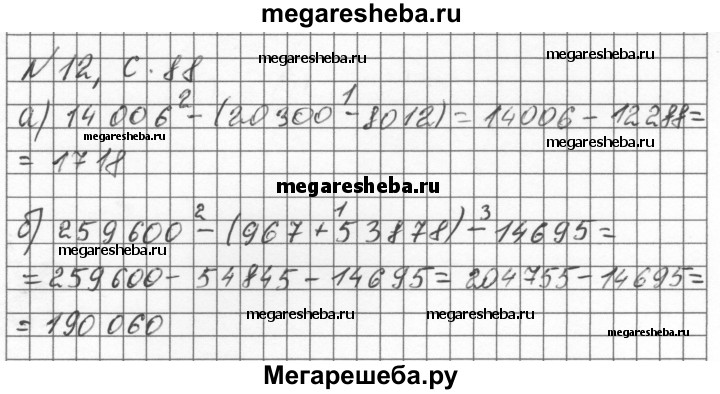 megaresheba.ru
№ 12, с. 88
megaresheba.ru
megaresheba.ru
а) 14 006 2- (20 300 1- 8012) = 14006 - 12288 =
megaresheba.ru
megaresheba.ru
= 1718
megaresheba.ru
б) 259 600 2- (967 1+ 53 878) 3- 14695 =
megaresheba.ru
= 259600 - 54845 - 14695 = 204755 - 14695 =
= 190 060
megaresheba.ru
megaresheba.ru
megaresheba.ru
Мегарешеба.ру